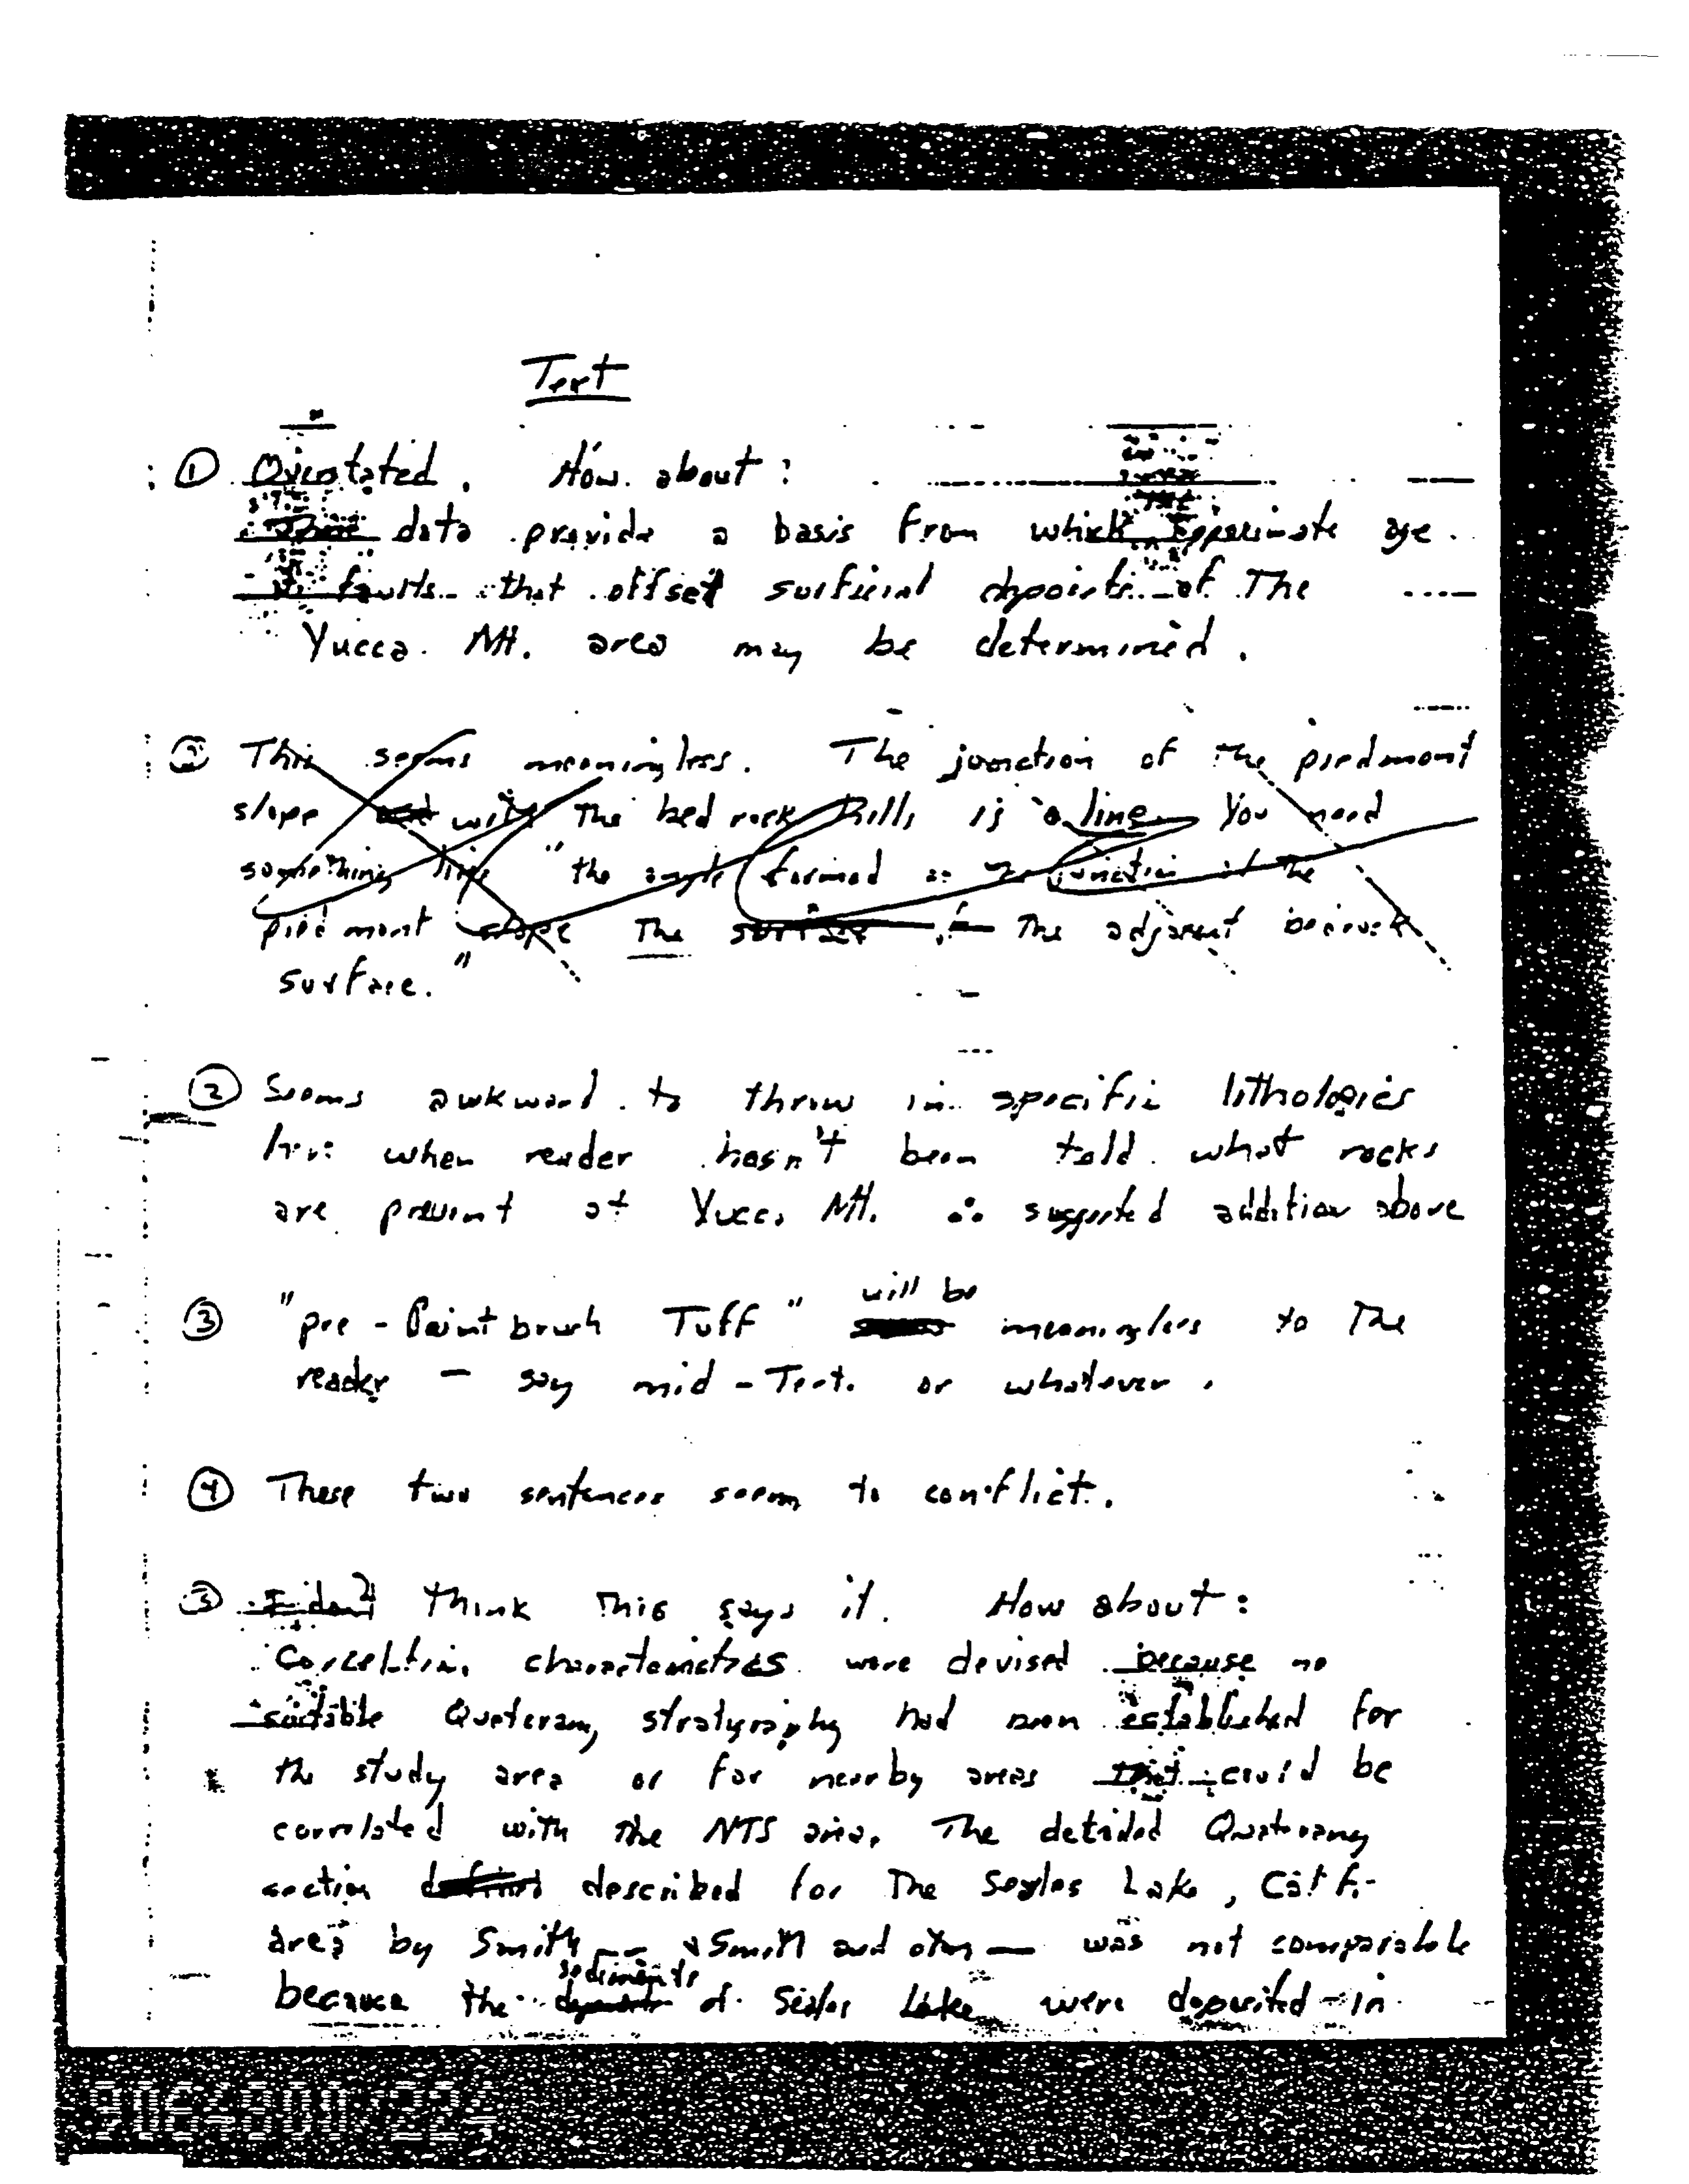 Text
① Overstated. How about:
These data provide a basis from which approximate age
faults that offset surficial deposits of the
Yucca Mt. area may be determined.
② This seems meaningless. The junction of the piedmont
slope with the bedrock hills is a line. You need
something like "the angle formed at the junction of the
piedmont slope the surface the adjacent bedrock
surface."
② Seems awkward to throw in specific lithologies
here when reader hasn't been told what rocks
are present at Yucca Mt. ∴ suggested addition above
③ "pre-Paintbrush Tuff" will be meaningless to the
reader - say mid-Tert. or whatever.
④ These two sentences seem to conflict.
⑤ I don't think this says it. How about:
Correlation characteristics were devised because no
suitable Quaternary stratigraphy had been established for
the study area or for nearby areas that could be
correlated with the NTS area. The detailed Quaternary
section described for the Searles Lake, Calif.
area by Smith -- & Smith and others — was not comparable
because the sediments of Searles Lake were deposited in